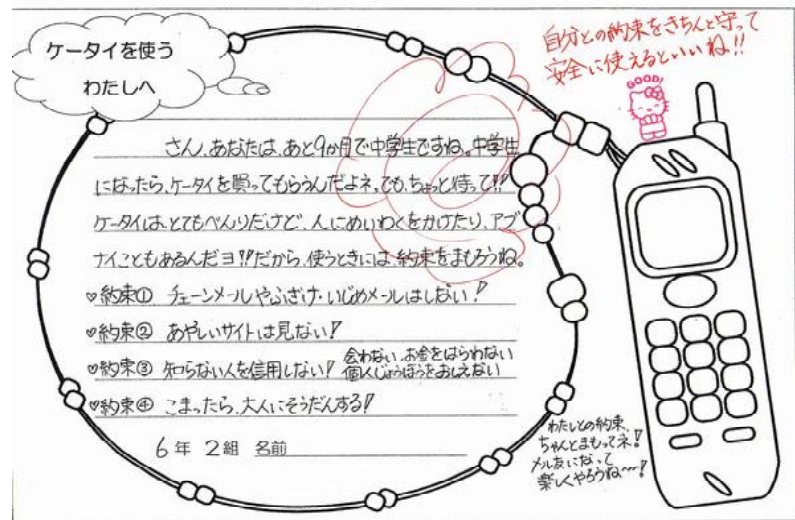 ケータイを使う
わたしへ
自分との約束をきちんと守って
安全に使えるといいね!!
さん、あなたは、あと9か月で中学生ですね。中学生
になったら、ケータイを買ってもらうんだよネ。でも、ちょっと待って!!
ケータイは、とてもべんりだけど、人にめいわくをかけたり、アブ
ナイこともあるんだヨ!!だから、使うときには、約束をまもろうね。
♡約束① チェーンメールやふざけ・いじめメールはしない!
♡約束② あやしいサイトは見ない!
♡約束③ 知らない人を信用しない! 会わない、お金をはらわない
個人じょうほうをおしえない
♡約束④ こまったら、大人にそうだんする!
6年 2組 名前
わたしとの約束、
ちゃんとまもってネ!
メル友になって
楽しくやろうね〜〜!